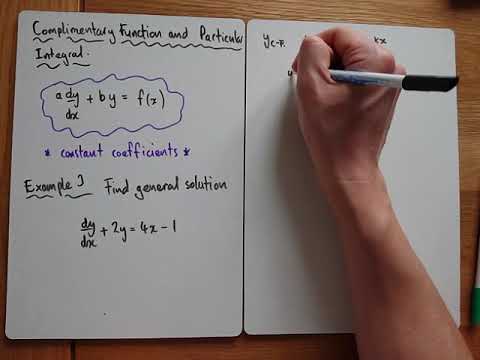 Complimentary Function and Particular
Integral.
a dy/dx + by = f(x)
* constant coefficients *
Example 1 Find general solution
dy/dx + 2y = 4x - 1
y C.F.